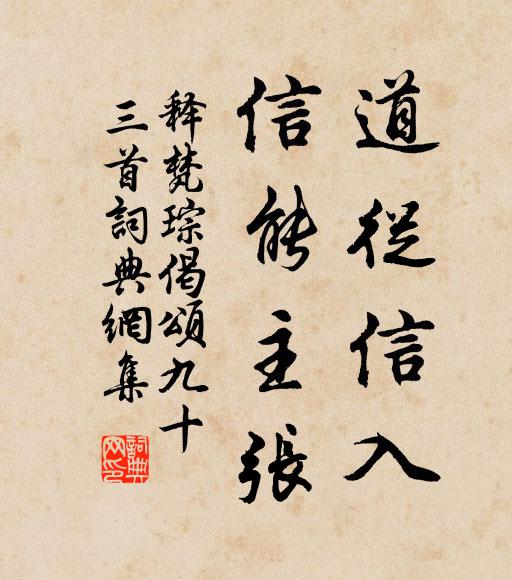 道從信入
信能主張
释梵琮偈頌九十
三首詞典網集
詞典网印